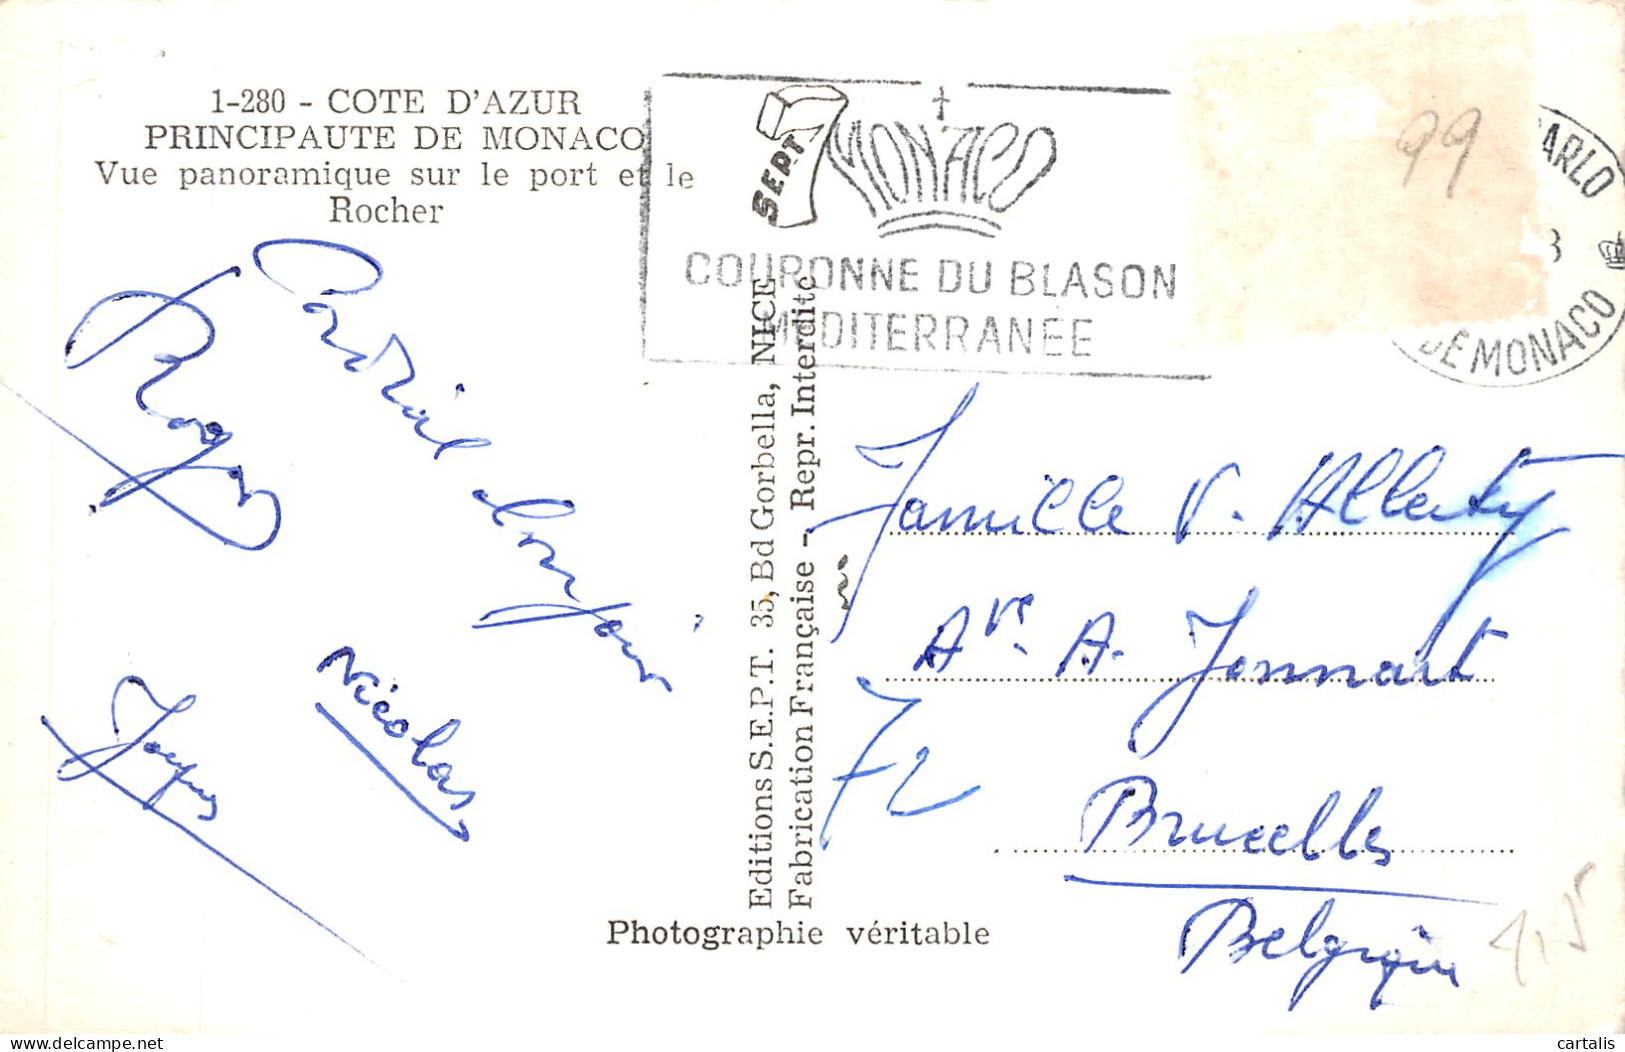 1-280 - COTE D'AZUR
PRINCIPAUTE DE MONACO
Vue panoramique sur le port et le
Rocher
SEPT
MONACO
COURONNE DU BLASON
MEDITERRANEE
ARLO
DE MONACO
99
Cordial bonjour
Roger
Nicolas
Jacques
Editions S.E.P.T. 35, Bd Gorbella, NICE
Fabrication Française - Repr. Interdite
Photographie véritable
Famille V.
Ave. A. Jonnart
72
Bruxelles
Belgique
4,5
cartalis